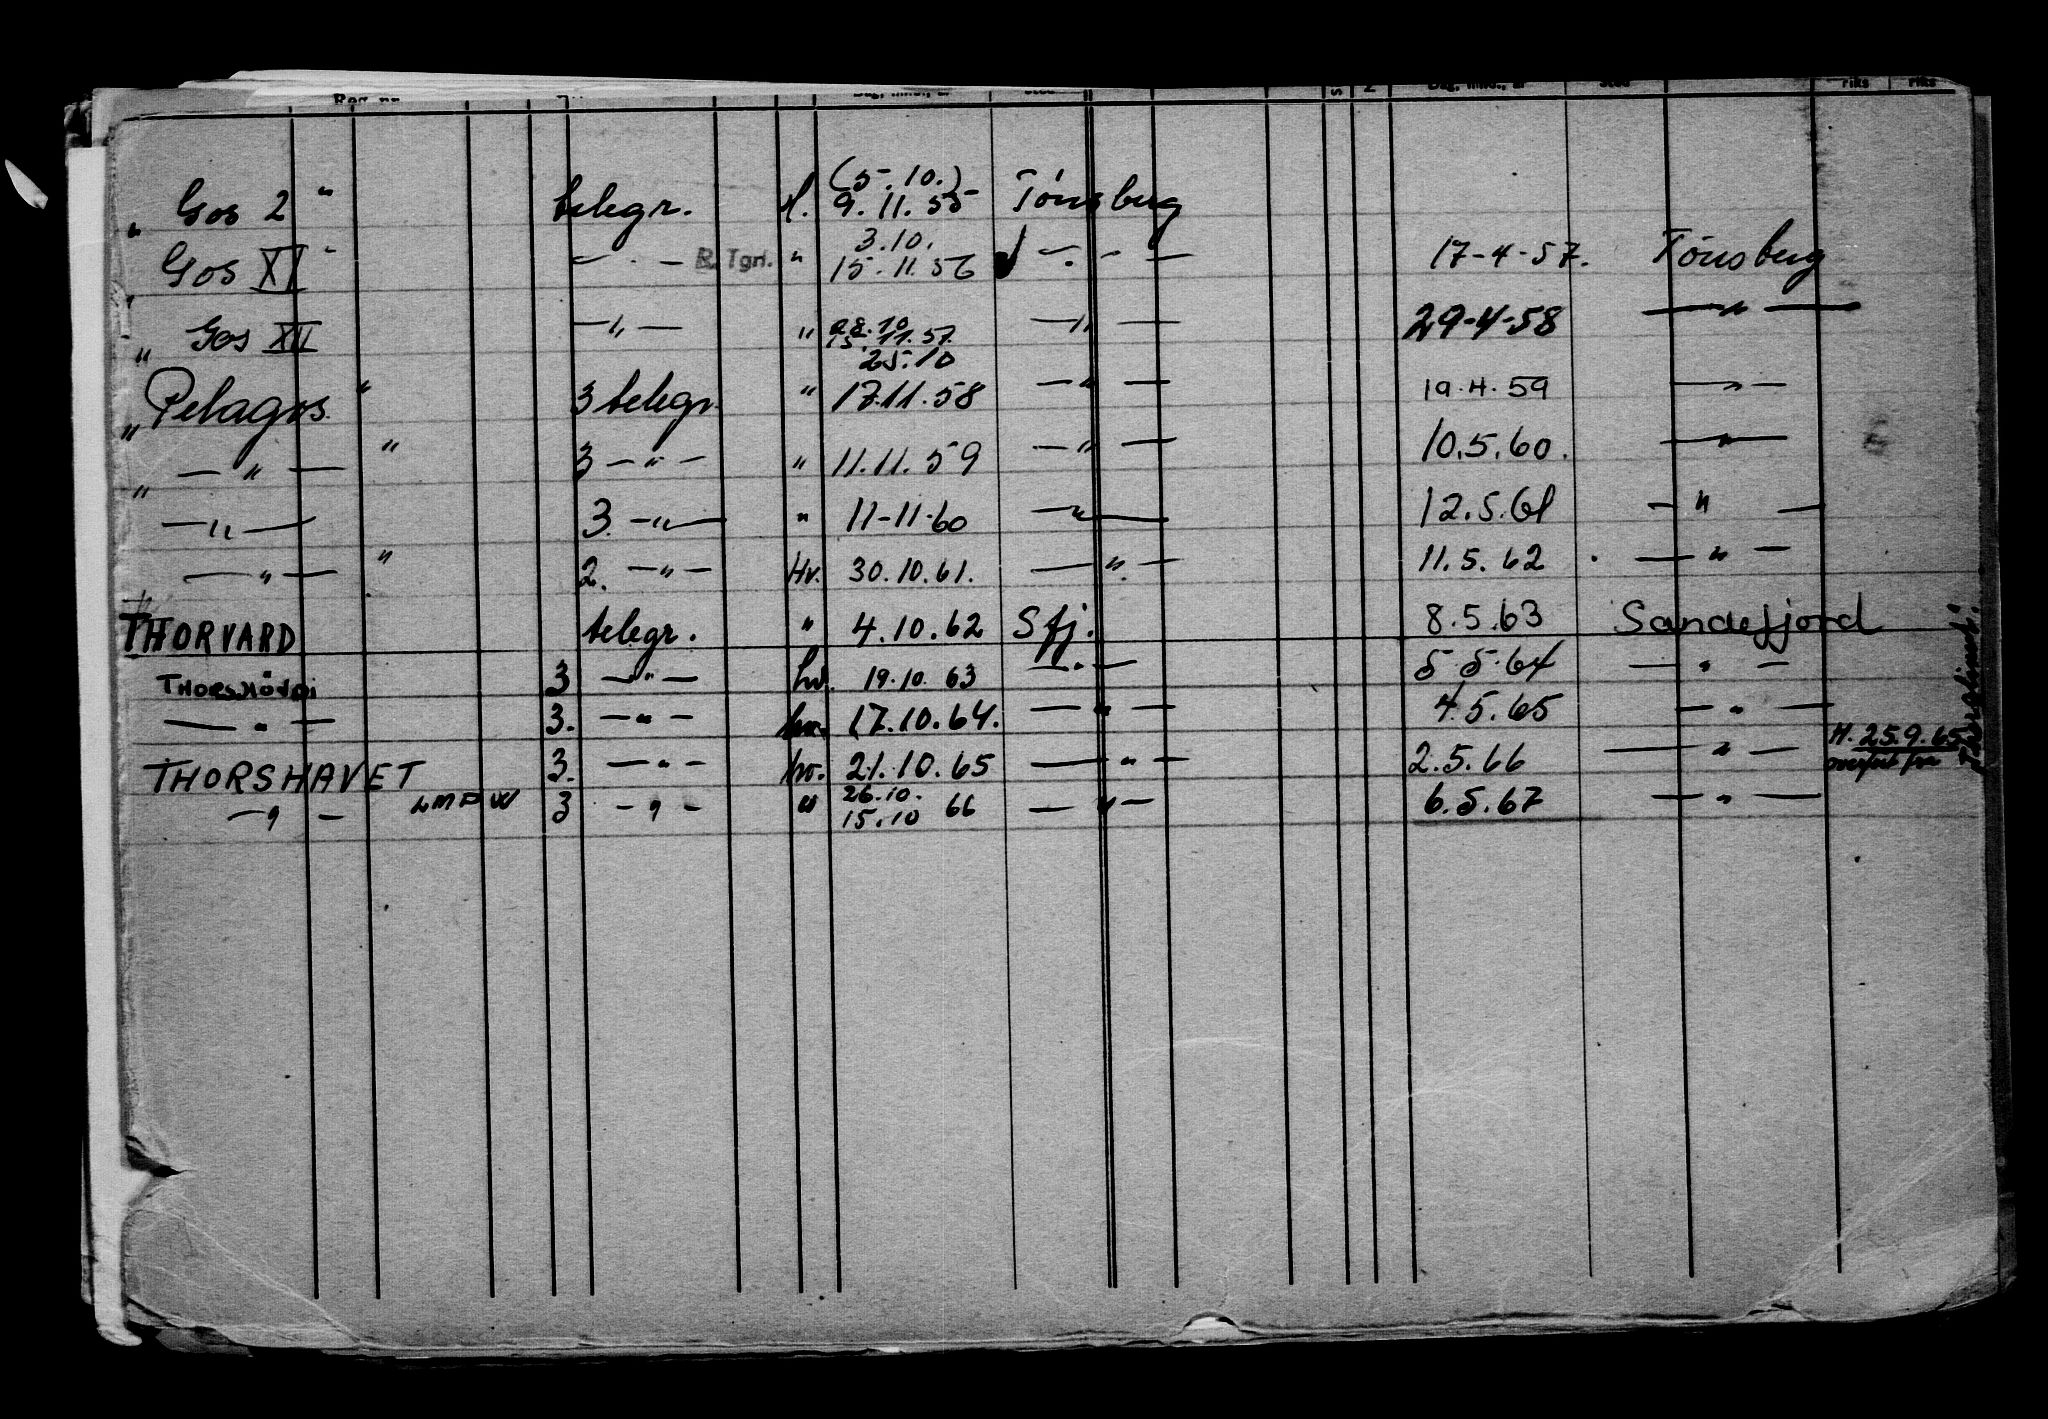 Reg. nr. Dag, mnd., år Sted S Z Dag, mnd., år Sted riks riks
(5.10.)
" Gos 2 " telegr. 9.11.55 Tönsberg
3.10.
" Gos XI " — " — R. Tgn. " 15.11.56 — " — 17-4-57. Tönsberg
28.10
" Gos XII — " — " 15.11.57. — " — 29-4-58 — " —
25.10
" Pelagos " 3 telegr. " 17.11.58 — " — 19.4.59 — " —
" — " — " 3 — " — " 11.11.59 — " — 10.5.60. — " —
— " — 3. — " — " 11-11-60 — " — 12.5.61 — " —
— " — " 2. — " — Hv. 30.10.61. — " — 11.5.62 — " —
THORVARD telegr. " 4.10.62 Sfj. 8.5.63 Sandefjord
THORSHÖVDI 3 — " — hv. 19.10.63 — " — 5.5.64 — " —
— " — 3. — " — hv. 17.10.64. — " — 4.5.65 — " —
THORSHAVET 3. — " — hv. 21.10.65 — " — 2.5.66 — " — H. 25.9.65 overfört fra
26.10.
— " — LMPW 3 — " — " 15.10 66 — " — 6.5.67 — " —